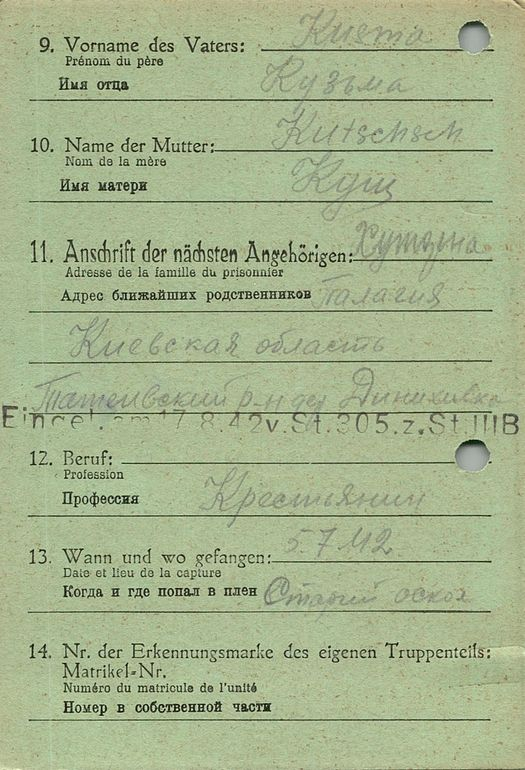 9. Vorname des Vaters: Kusma
Prénom du père
Имя отца Кузьма
10. Name der Mutter: Kutschsch
Nom de la mère
Имя матери Кущ
11. Anschrift der nächsten Angehörigen:
Adresse de la famille du prisonnier
Адрес ближайших родственников Палагия
Киевская область
р-н дер
Eingel. am 17.8.42 v. St. 305. z. St. III B
12. Beruf:
Profession
Профессия Крестьянин
13. Wann und wo gefangen: 5.7.42.
Date et lieu de la capture
Когда и где попал в плен Старий оскол
14. Nr. der Erkennungsmarke des eigenen Truppenteils:
Matrikel-Nr.
Numéro du matricule de l'unité
Номер в собственной части